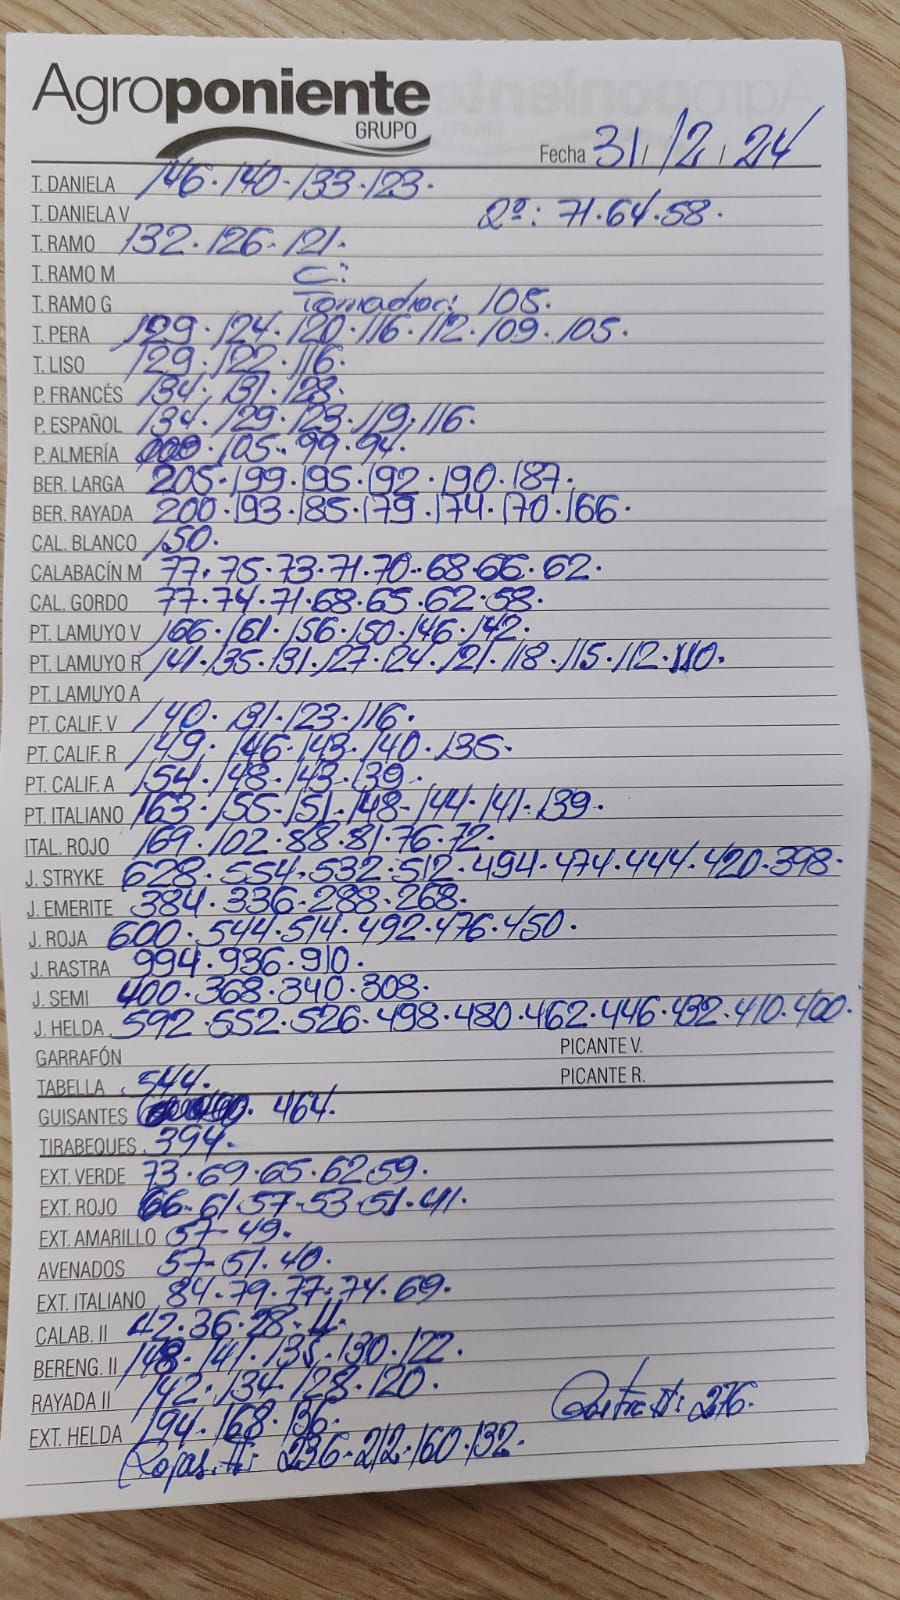 Agroponiente
GRUPO
Fecha 31/12/24
T. DANIELA 146·140·133·123·
T. DANELA V 2ª: 71·64·58·
T. RAMO 132·126·121·
T. RAMO M C:
T. RAMO G 105·
T. PERA 129·124·120·116·112·109·105·
T. LISO 129·122·116·
P. FRANCÉS 134·131·128·
P. ESPAÑOL 134·129·123·119·116·
P. ALMERÍA 105·99·94·
BER. LARGA 205·199·195·192·190·187·
BER. RAYADA 200·193·185·179·174·170·166·
CAL. BLANCO 150·
CALABACÍN M 77·75·73·71·70·68·66·62·
CAL. GORDO 77·74·71·68·65·62·58·
PT. LAMUYO V 166·161·156·150·146·142·
PT. LAMUYO R 141·135·131·127·124·121·118·115·112·110·
PT. LAMUYO A
PT. CALIF. V 140·131·123·116·
PT. CALIF. R 149·146·143·140·135·
PT. CALIF. A 154·148·143·139·
PT. ITALIANO 163·155·151·148·144·141·139·
ITAL. ROJO 169·102·88·81·76·72·
J. STRYKE 628·554·532·512·494·474·444·420·398·
J. EMERITE 384·336·288·268·
J. ROJA 600·544·514·492·476·450·
J. RASTRA 994·936·910·
J. SEMI 400·368·340·308·
J. HELDA 592·552·526·498·480·462·446·432·410·400·
GARRAFÓN PICANTE V.
TABELLA 544· PICANTE R.
GUISANTES 464·
TIRABEQUES 394·
EXT. VERDE 73·69·65·62·59·
EXT. ROJO 66·61·57·53·51·41·
EXT. AMARILLO 57·49·
AVENADOS 57·51·40·
EXT. ITALIANO 84·79·77·74·69·
CALAB. II 42·36·28·
BERENG. II 148·141·135·130·122·
RAYADA II 142·134·128·120· 276·
EXT. HELDA 194·168·136·
Rojas II: 236·212·160·132·